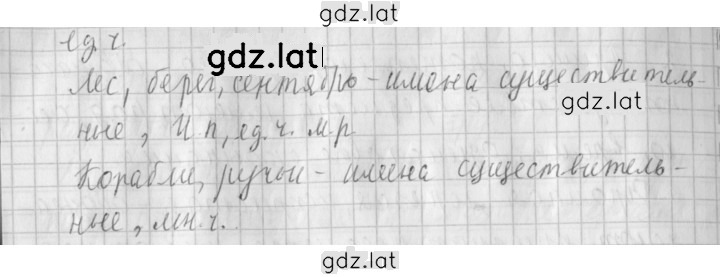 gdz.lat
ед.ч.
gdz.lat
Лес, берег, сентябрь - имена существитель-
gdz.lat
ные, И.п, ед.ч. м.р
Корабли, ручьи - имена существитель-
ные, мн.ч.
gdz.lat